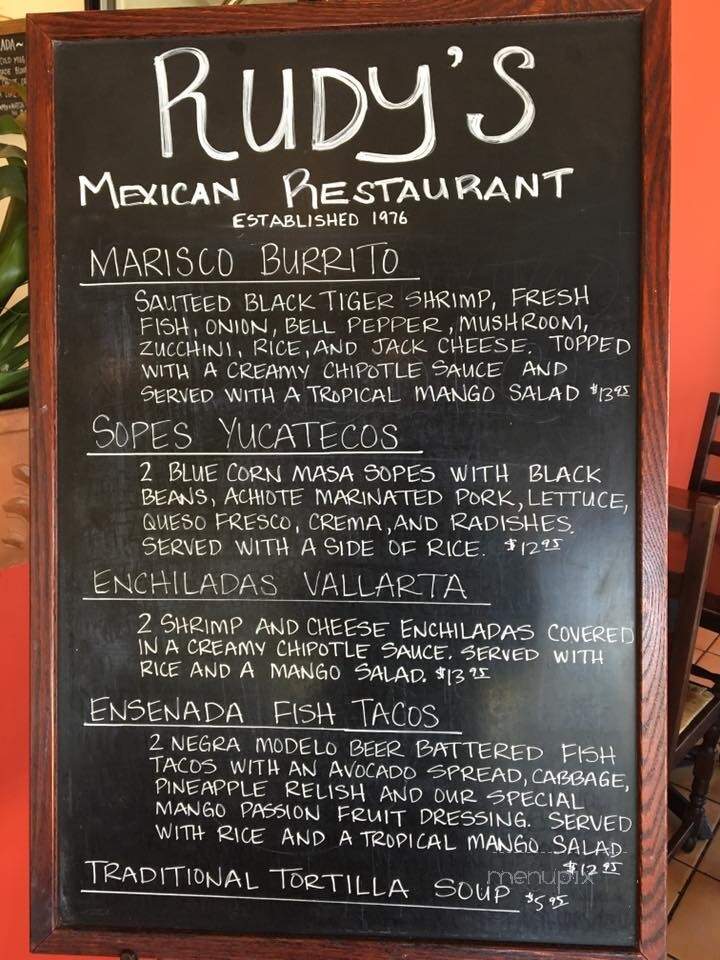 RUDY'S
MEXICAN RESTAURANT
ESTABLISHED 1976
MARISCO BURRITO
SAUTEED BLACK TIGER SHRIMP, FRESH
FISH, ONION, BELL PEPPER, MUSHROOM,
ZUCCHINI, RICE, AND JACK CHEESE. TOPPED
WITH A CREAMY CHIPOTLE SAUCE AND
SERVED WITH A TROPICAL MANGO SALAD $13.95
SOPES YUCATECOS
2 BLUE CORN MASA SOPES WITH BLACK
BEANS, ACHIOTE MARINATED PORK, LETTUCE,
QUESO FRESCO, CREMA, AND RADISHES.
SERVED WITH A SIDE OF RICE. $12.95
ENCHILADAS VALLARTA
2 SHRIMP AND CHEESE ENCHILADAS COVERED
IN A CREAMY CHIPOTLE SAUCE. SERVED WITH
RICE AND A MANGO SALAD. $13.95
ENSENADA FISH TACOS
2 NEGRA MODELO BEER BATTERED FISH
TACOS WITH AN AVOCADO SPREAD, CABBAGE,
PINEAPPLE RELISH AND OUR SPECIAL
MANGO PASSION FRUIT DRESSING. SERVED
WITH RICE AND A TROPICAL MANGO SALAD
$12.95
menupix
TRADITIONAL TORTILLA SOUP $5.95